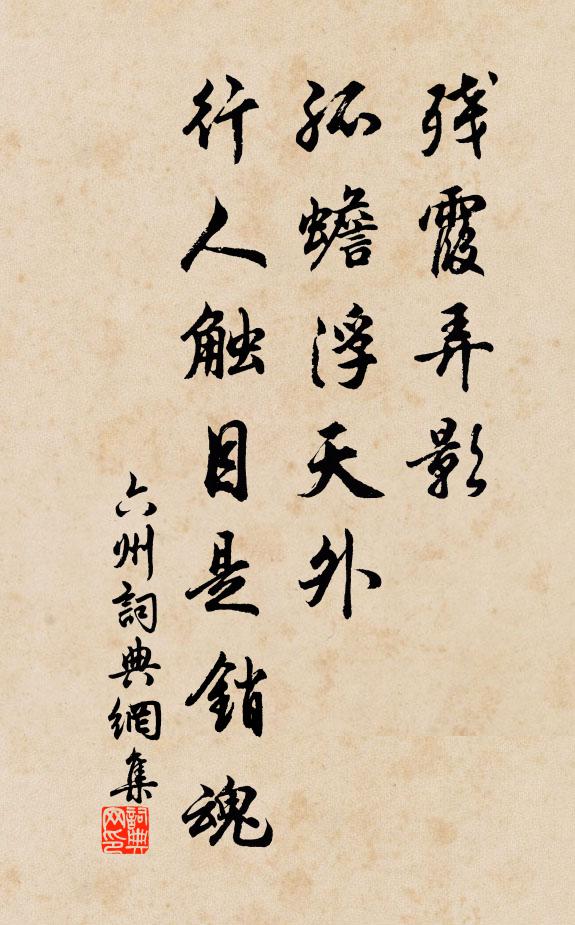 残霞弄影
孤蟾浮天外
行人触目是销魂
六州詞典網集
詞典
网印